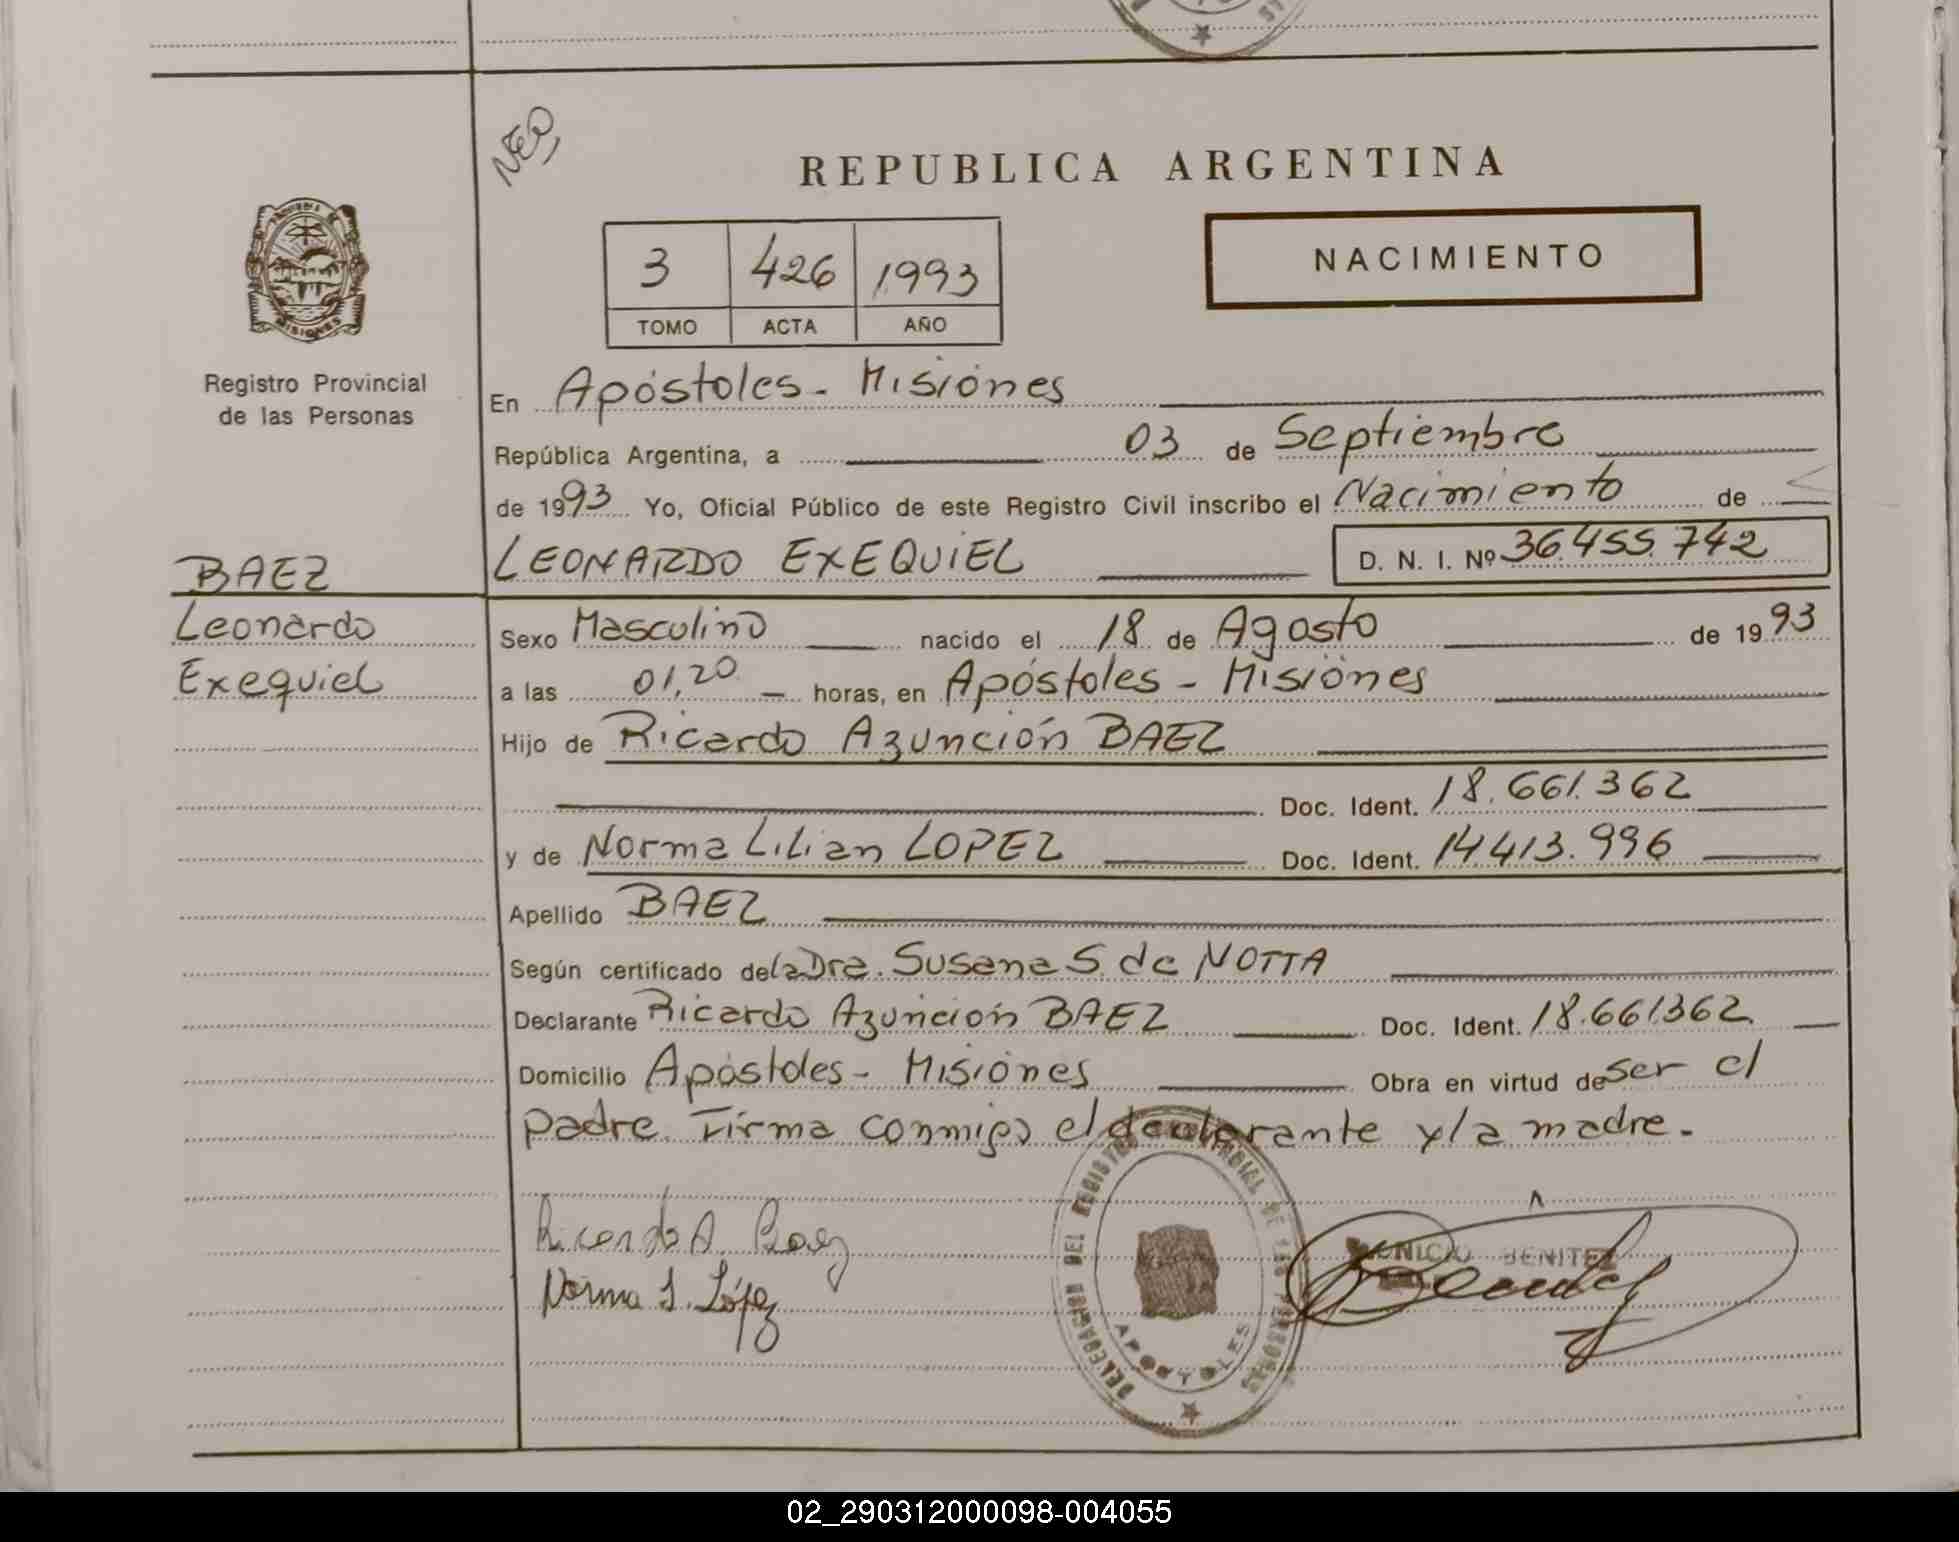 NEO
REPUBLICA ARGENTINA
NACIMIENTO
3 426 1993
TOMO ACTA AÑO
MISIONES
Registro Provincial
de las Personas
En Apóstoles - Misiones
República Argentina, a 03 de Septiembre
de 1993 Yo, Oficial Público de este Registro Civil inscribo el Nacimiento de
BAEZ
LEONARDO EXEQUIEL D. N. I. Nº 36.455.742
Leonardo
Sexo Masculino nacido el 18 de Agosto de 1993
Exequiel
a las 01,20 - horas, en Apóstoles - Misiones
Hijo de Ricardo Azunción BAEZ
Doc. Ident. 18.661.362
y de Norma Lilian LOPEZ Doc. Ident. 14.413.996
Apellido BAEZ
Según certificado de la Dra. Susana S. de NOTTA
Declarante Ricardo Azunción BAEZ Doc. Ident. 18.661.362
Domicilio Apóstoles - Misiones Obra en virtud de ser el
padre. Firma conmigo el declarante y/a madre.-
Ricardo A. Baez
Norma L. López
DELEGACION DEL REGISTRO PROVINCIAL DE LAS PERSONAS
APOSTOLES
BENITEZ
02_290312000098-004055